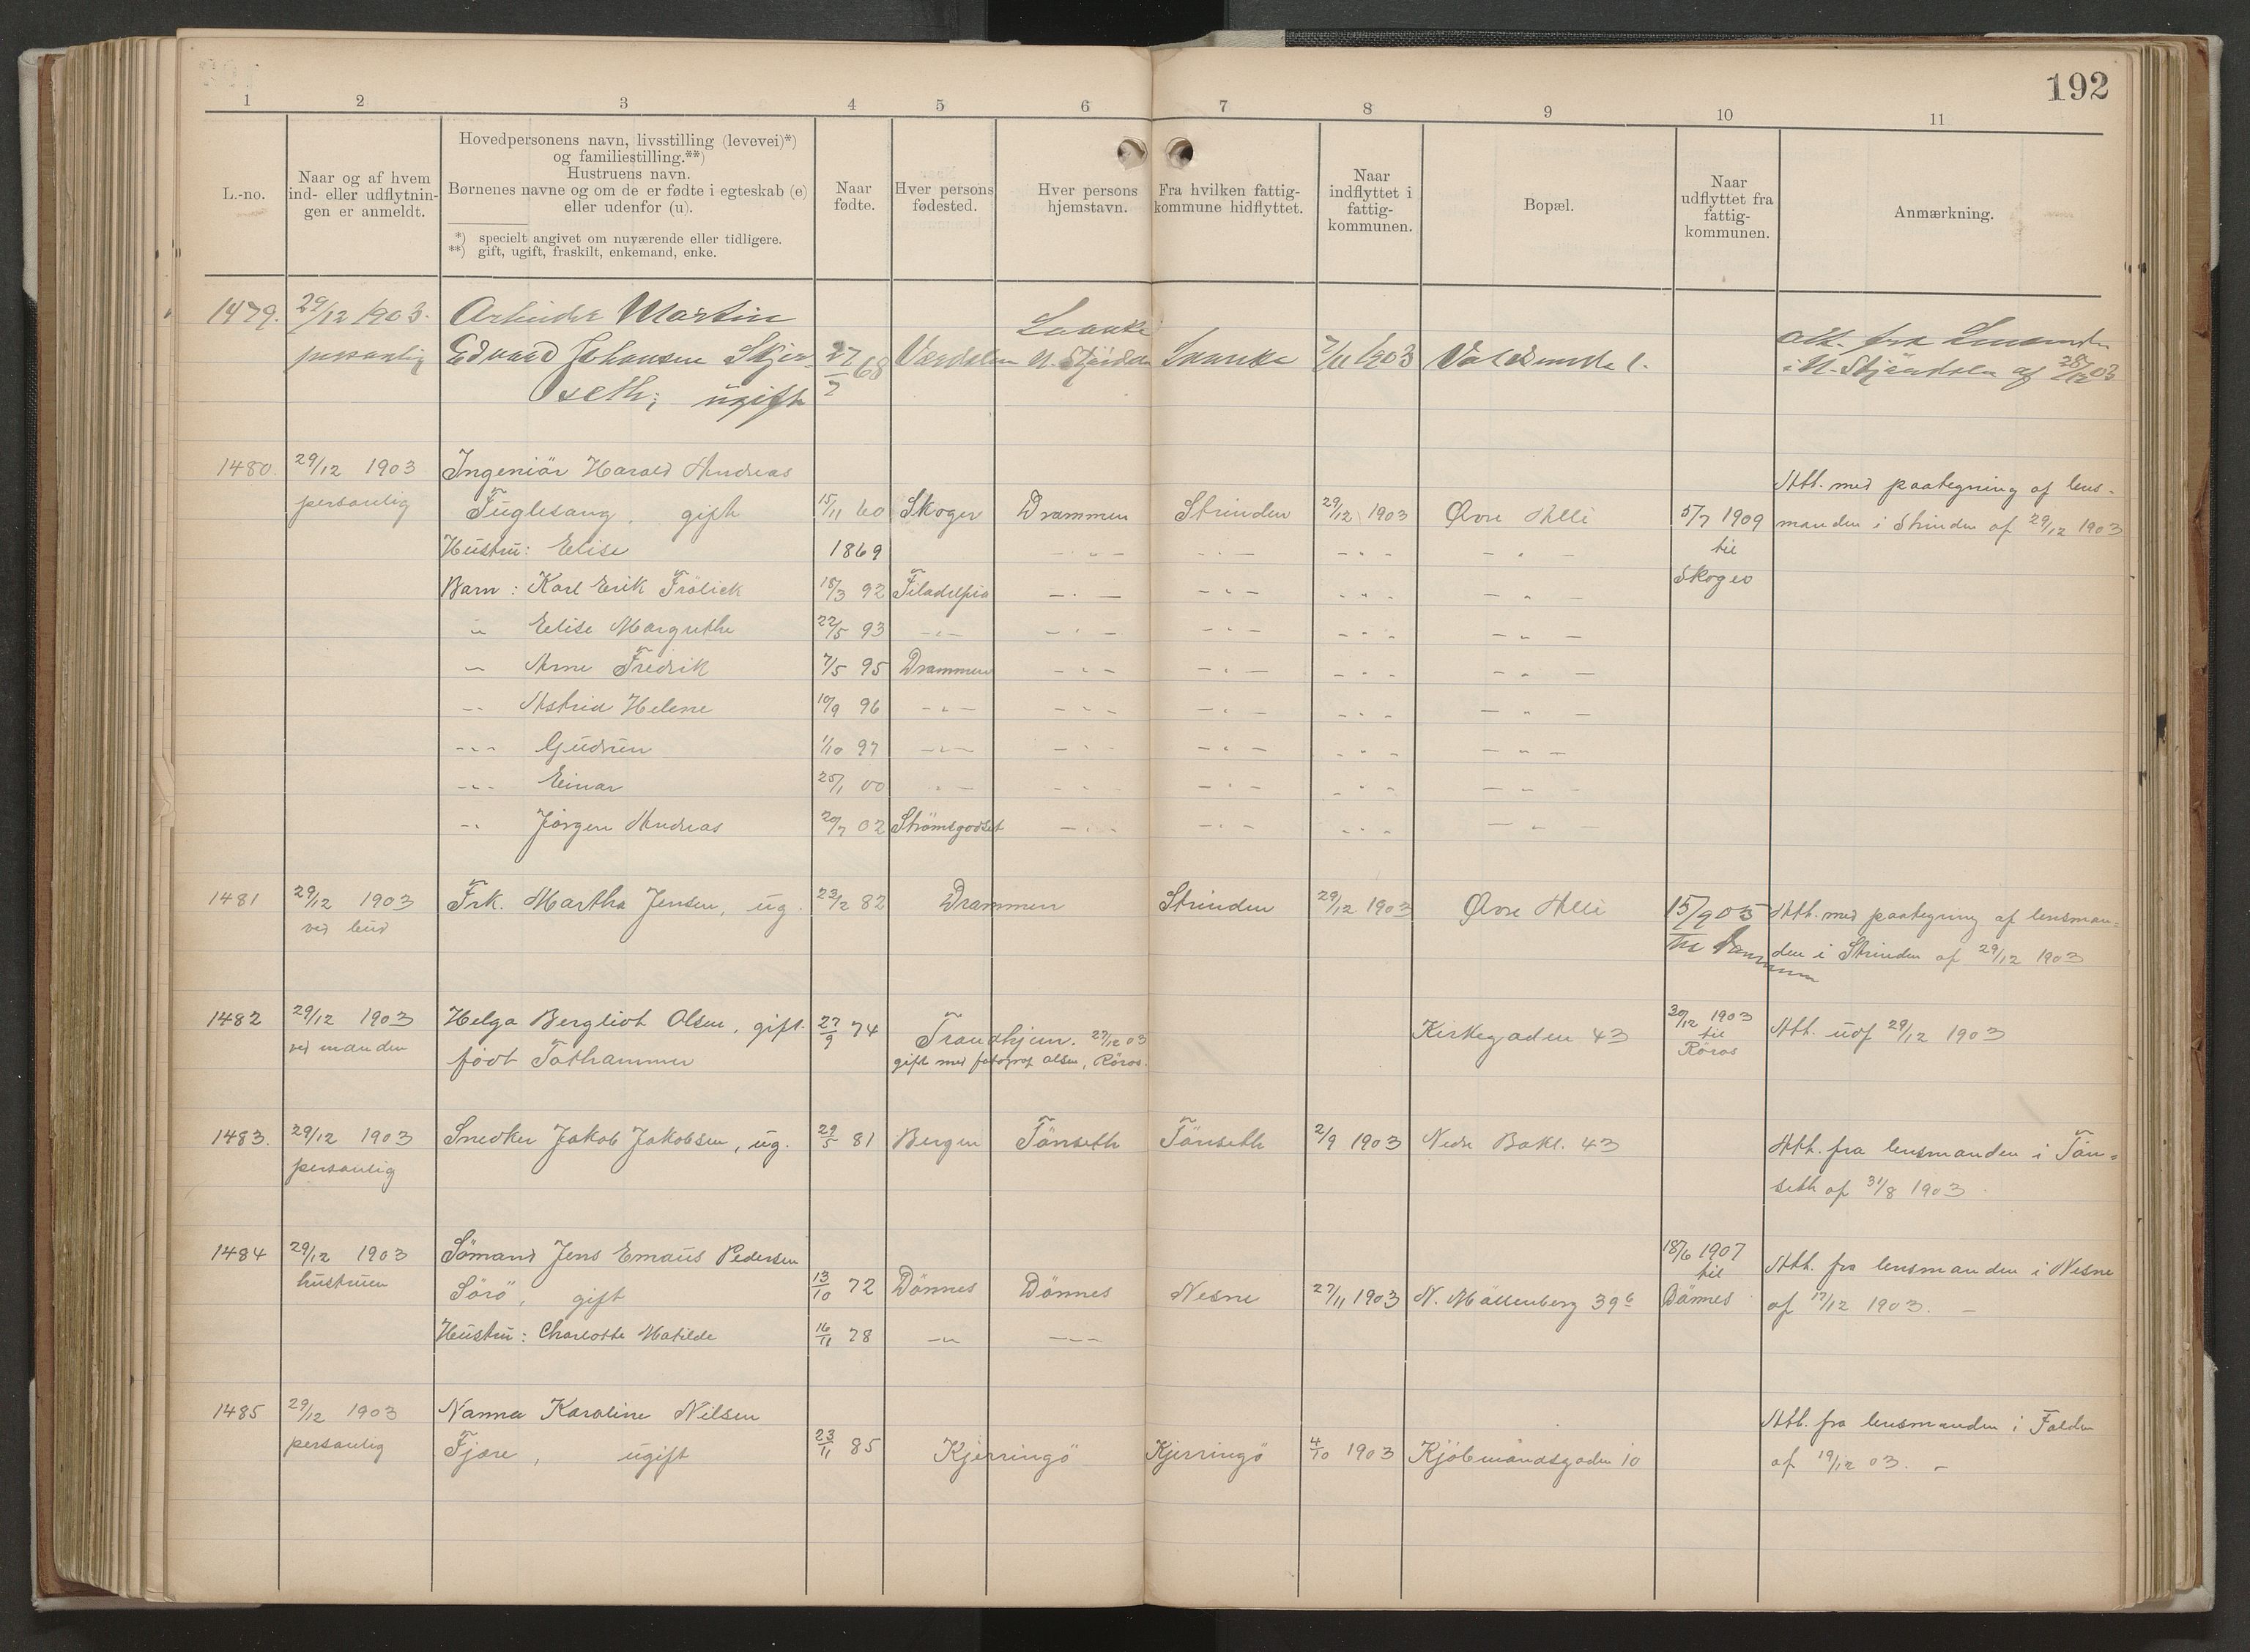 192
1 2 3 4 5 6 7 8 9 10 11
L.-no.
Naar og af hvem
ind- eller udflytnin-
gen er anmeldt.
Hovedpersonens navn, livsstilling (levevei)*)
og familiestilling.**)
Hustruens navn.
Børnenes navne og om de er fødte i egteskab (e)
eller udenfor (u).
*) specielt angivet om nuværende eller tidligere.
**) gift, ugift, fraskilt, enkemand, enke.
Naar
fødte.
Hver persons
fødested.
Hver persons
hjemstavn.
Fra hvilken fattig-
kommune hidflyttet.
Naar
indflyttet i
fattig-
kommunen.
Bopæl.
Naar
udflyttet fra
fattig-
kommunen.
Anmærkning.
1479. 29/12 1903. Arbeider Martin Laanke
personlig Edvard Johansen Skjer- 27/7 68 Værdalen N. Stjørdalen Laanke 7/11 1903 Att. fra
seth; ugift i N. Stjørdalen af 28/12 03
1480. 29/12 1903 Ingeniör Harald Andreas Att. med paategning af lens-
personlig Fuglesang, gift 15/11 60 Skoger Drammen Strinden 29/12 1903 Øvre Alle 5/7 1909 manden i Strinden af 29/12 1903
Hustru: Elise 1869 - " - - " - - " - - " - til
Barn: Karl Erik Frölick 18/3 92 Filadelfia - " - - " - - " - - " - Skoger
" Elise Margrethe 22/5 93 - " - - " - - " - - " - - " -
" Arne Fredrik 7/5 95 Drammen - " - - " - - " - - " -
" Astrid Helene 10/9 96 - " - - " - - " - - " - - " -
- " - Gudrun 1/10 97 - " - - " - - " - - " - - " -
- " - Einar 25/1 00 - " - - " - - " - - " - - " -
" Jörgen Andreas 20/7 02 Strömsgodset - " - - " - - " - - " -
1481 29/12 1903 Frk. Martha Jensen, ug. 23/2 82 Drammen Strinden 29/12 1903 Øvre Alle 15/9 05 Att. med paategning af lensman=
ved bud til Drammen den i Strinden af 29/12 1903
1482 29/12 1903 Helga Bergliot Olsen, gift. 27/9 74 Trondhjem. 27/12 03 Kirkegaden 43 30/12 1903 Att. udf 29/12 1903
ved manden født Tathammer gift med fotograf Olsen, Röros. til
Röros
1483. 29/12 1903 Snedker Jakob Jakobsen, ug. 29/5 81 Bergen Tönseth Tönseth 2/9 1903 Nedre Bakl. 43 Att. fra lensmanden i Tön=
personlig seth af 31/8 1903
1484 29/12 1903 Sömand Jens Emaus Pedersen 18/6 1907 Att. fra lensmanden i Nesne
hustruen Sörö, gift 13/10 72 Dönnes Dönnes Nesne 27/11 1903 N. Möllenberg 39b til Dönnes af 17/12 1903. -
Hustru: Charlotte Matilde 16/11 78 - " - - " -
1485 29/12 1903 Nanna Karoline Nilsen Att. fra lensmanden i Folden
personlig Fjære, ugift 23/11 85 Kjerringö Kjerringö 4/10 1903 Kjöbmandsgaden 10 af 19/12 03. -